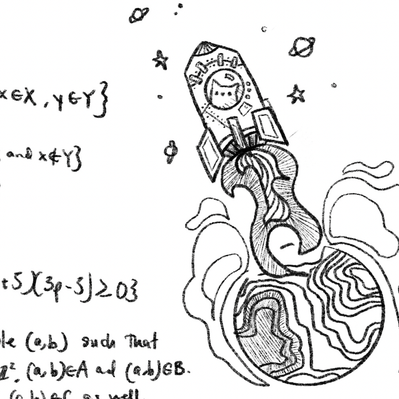 x∈X, y∈Y}
and x∉Y}
+5)(3p-5)≥0}
(a,b) such that
(a,b)∈A ad (a,b)∈B.
as well.